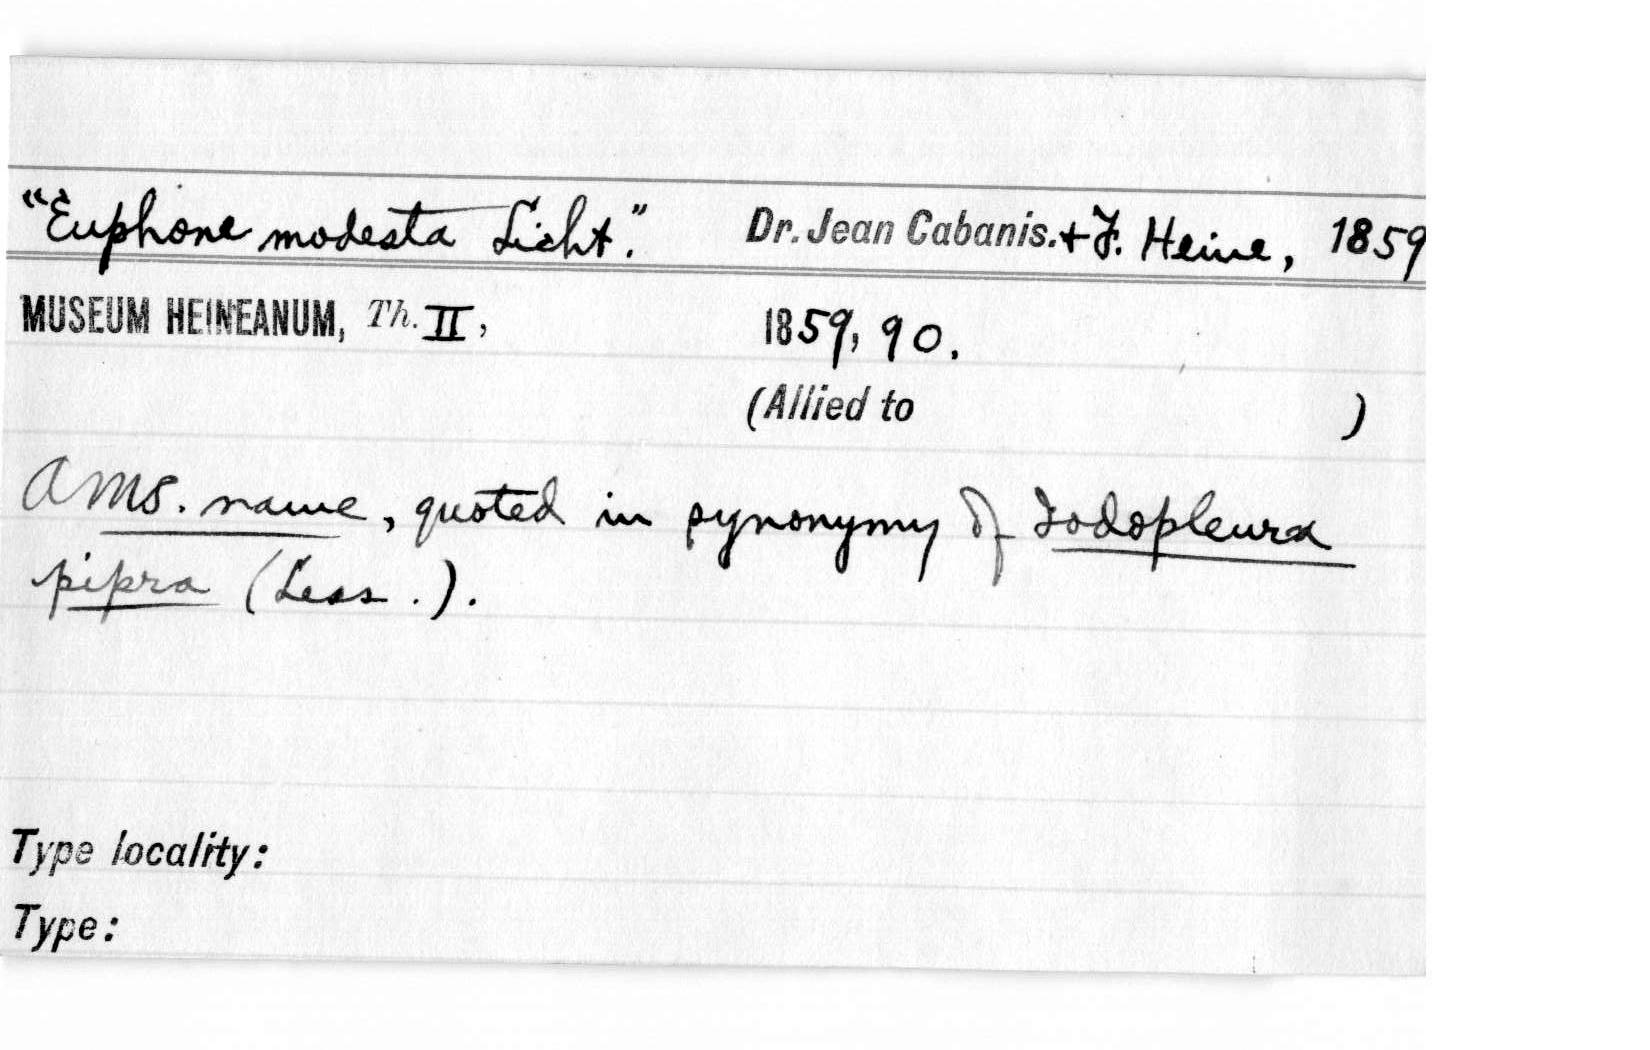 "Euphone modesta Licht." Dr. Jean Cabanis. + F. Heine, 1859
MUSEUM HEINEANUM, Th. II, 1859, 90.
(Allied to )
A MS. name, quoted in synonymy of Iodopleura
pipra (Less.).
Type locality:
Type: